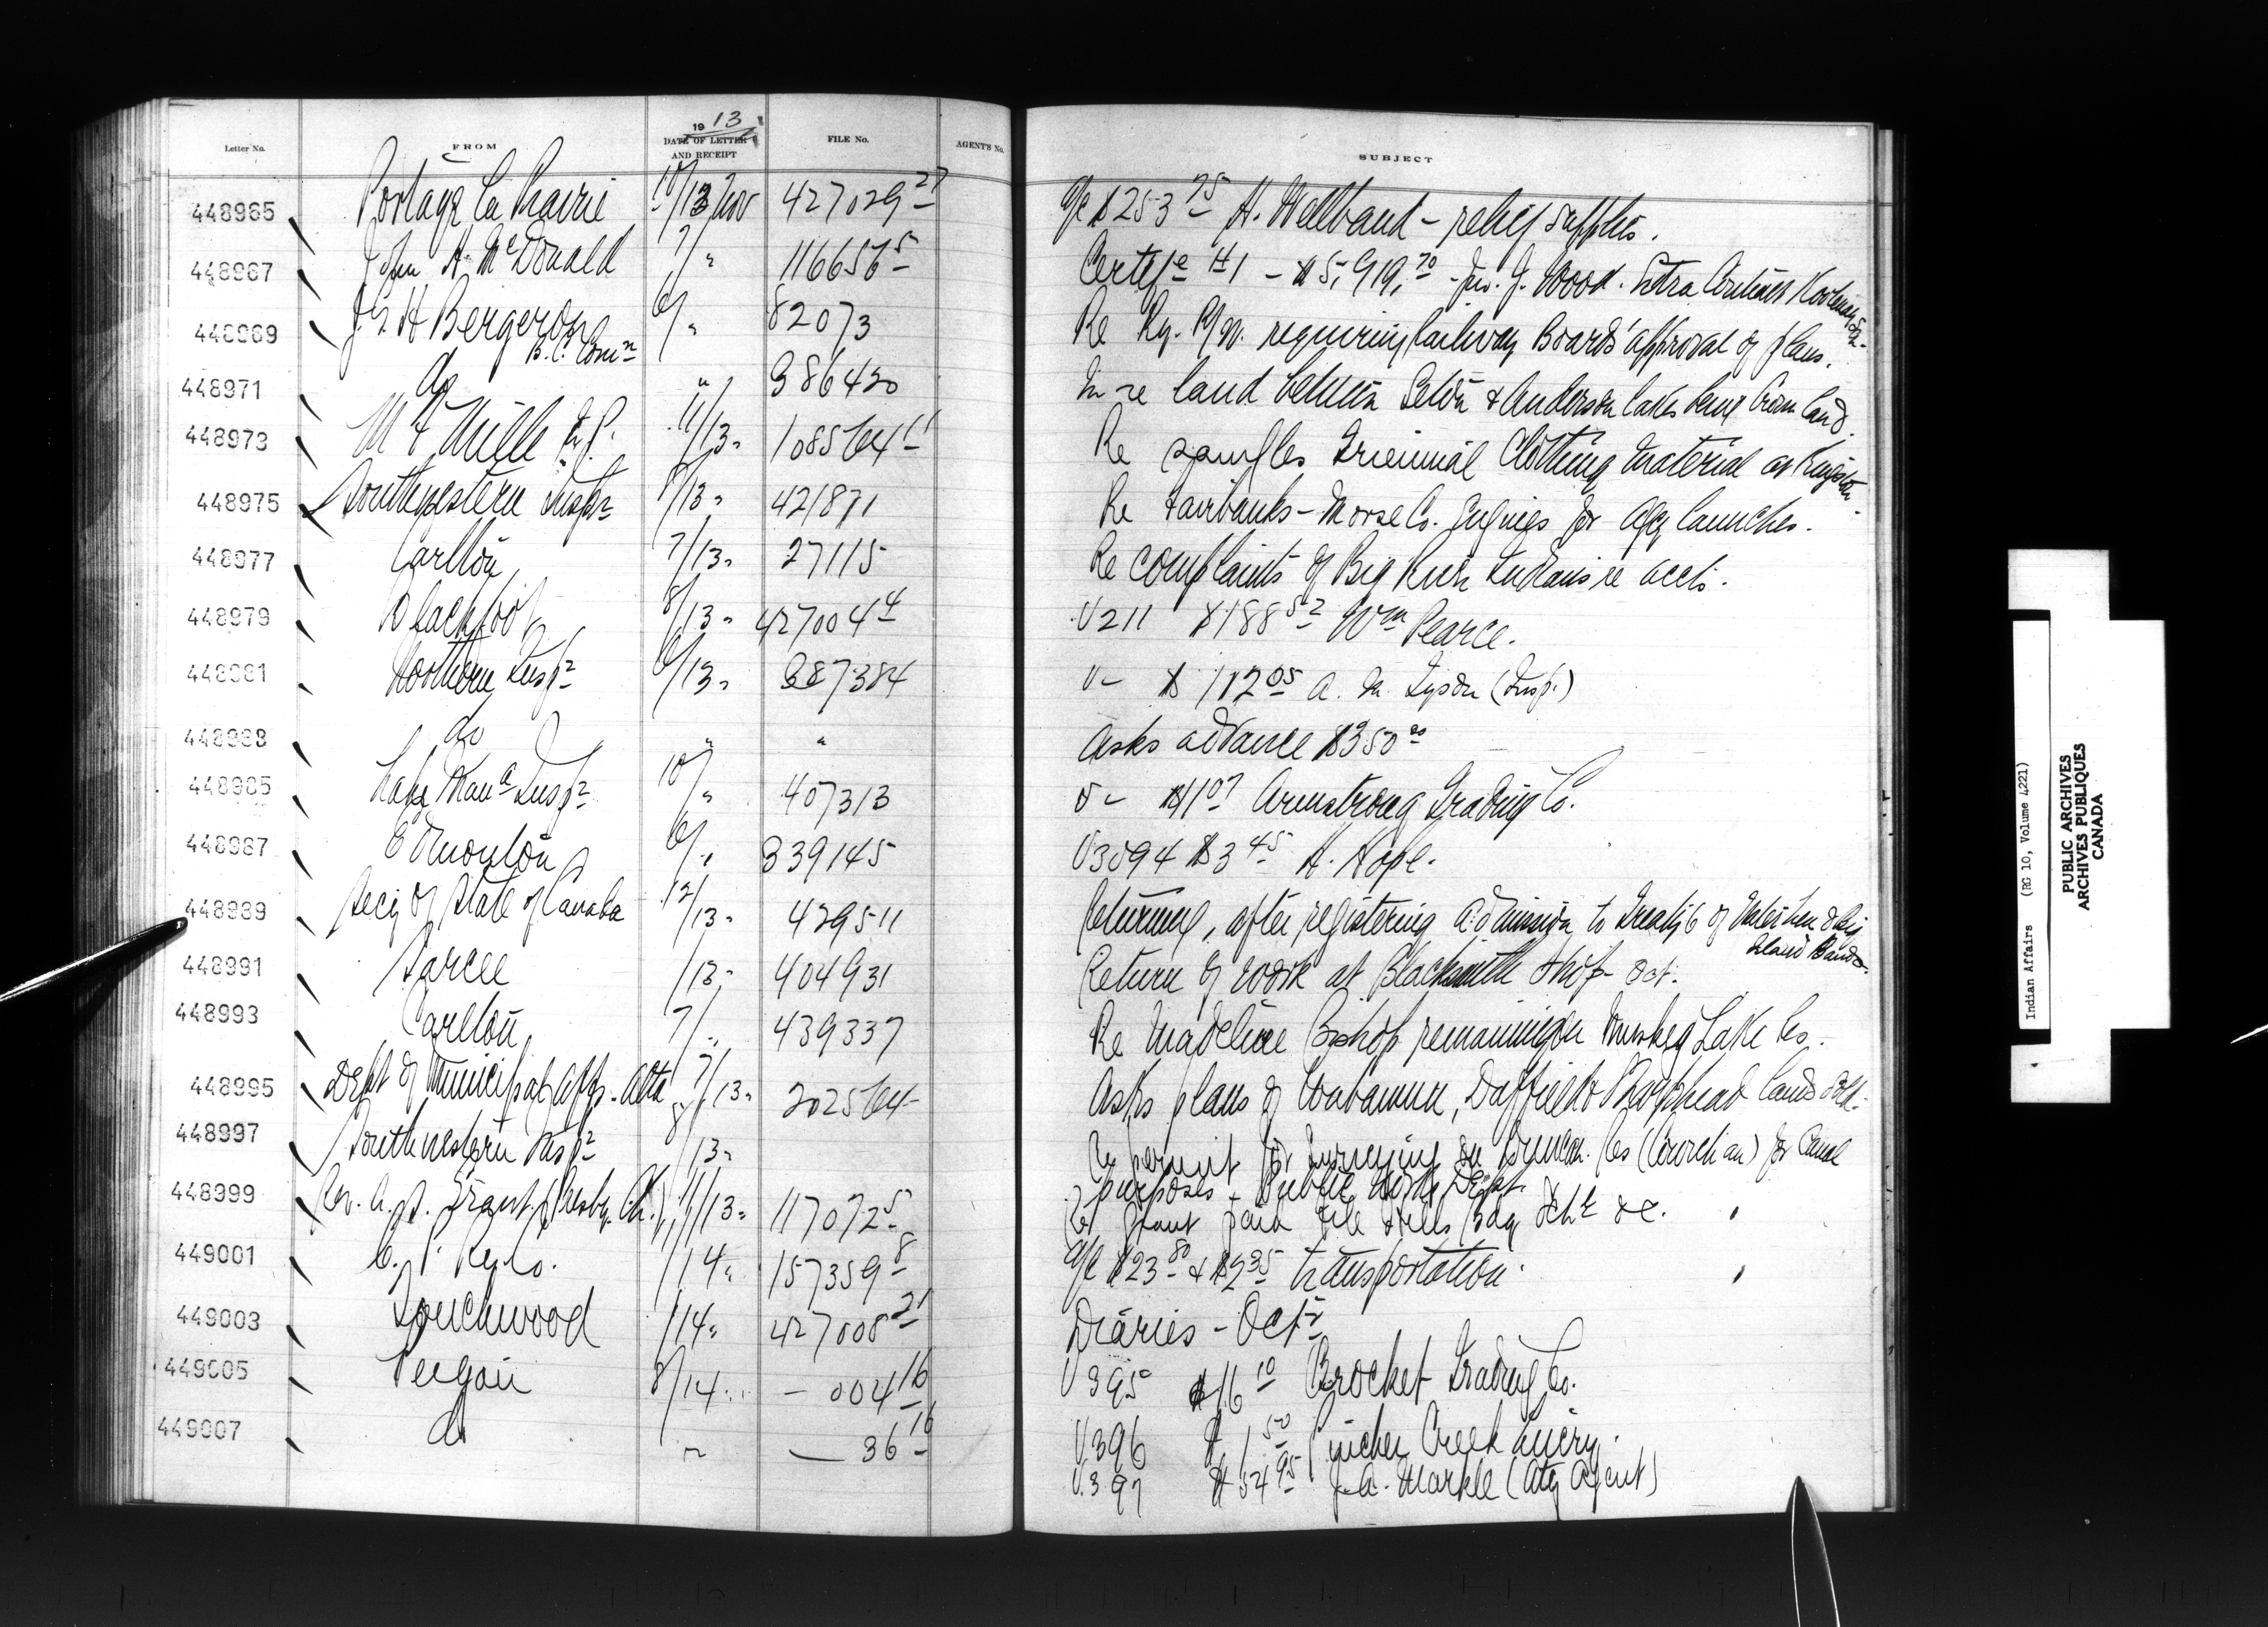 Letter No. FROM 1913 DATE OF LETTER AND RECEIPT FILE No. AGENT'S No. SUBJECT
448965 Portage la Prairie 10/13 Nov 427029 27 a/c $253 75 H. Wellband - relief supplies.
448967 John A. McDonald 7/ " 116656 5 Certife #1 - $5,919.70 - Jno. J. Wood. Extra
448969 J. G. H Bergeron 6/ " 82073 Re Ry. requiring Railway Boards' approval of plans.
B.C. Comn
448971 do " 386430 In re land between Seton & Anderson lakes being Crown land.
448973 11/13 " 108564 Re samples Triennial Clothing material at Kingston.
448975 Southwestern Inspr 8/13 " 421871 Re Fairbanks-Morse Co. Engines for Agcy launches.
448977 Carlton 7/13 " 27115 Re complaints of Big River Indians re accts.
448979 Blackfoot 8/13 " 427004 4 V211 $188 52 Wm Pearce.
448981 Northern Inspr 6/13 " 387384 V - $112 05 A. M. Tyson (Insp.)
448983 do " " Asks advance $350 00
448985 Lake Mana Inspr 10/ " 407313 V - $11 07 Armstrong Trading Co.
448987 Edmonton 6/ " 339145 V3094 $3 45 H. Hope.
448989 Secy of State of Canada 12/13 " 429511 Returning, after registering admission to Treaty 6 of
Island Bands.
448991 Sarcee /13 " 404931 Return of work at Blacksmith Shop Oct.
448993 Carlton 7/ " 439337 Re Madeline Bishop remaining on Muskeg Lake Res.
448995 Dept of Municipal Affs. Alta 7/13 " 202564 Asks plans of Wabamun, Duffield & lands sold.
448997 Southwestern Inspr 8/13 " Re permit for surveying on Res (Cowichan) for Canal
purposes - Public Works Dept.
448999 Rev. A. S. Grant (Presby. Ch.) 11/13 " 117072 5 Re grant paid File Hills Bdg Schl &c.
449001 C. P. Ry Co. /14 " 157359 8 a/c $23 80 & $2 35 transportation.
449003 Touchwood /14 " 427008 21 Diaries - Octr
449005 Peigan 8/14 " - 004 16 V395 $16 10 Brocket Trading Co.
449007 do " - 36 16 V396 $1 50 Pincher Creek Livery.
V.397 $54 95 J. A. Markle (Atg Agent)
Indian Affairs (RG 10, Volume 4221)
PUBLIC ARCHIVES
ARCHIVES PUBLIQUES
CANADA